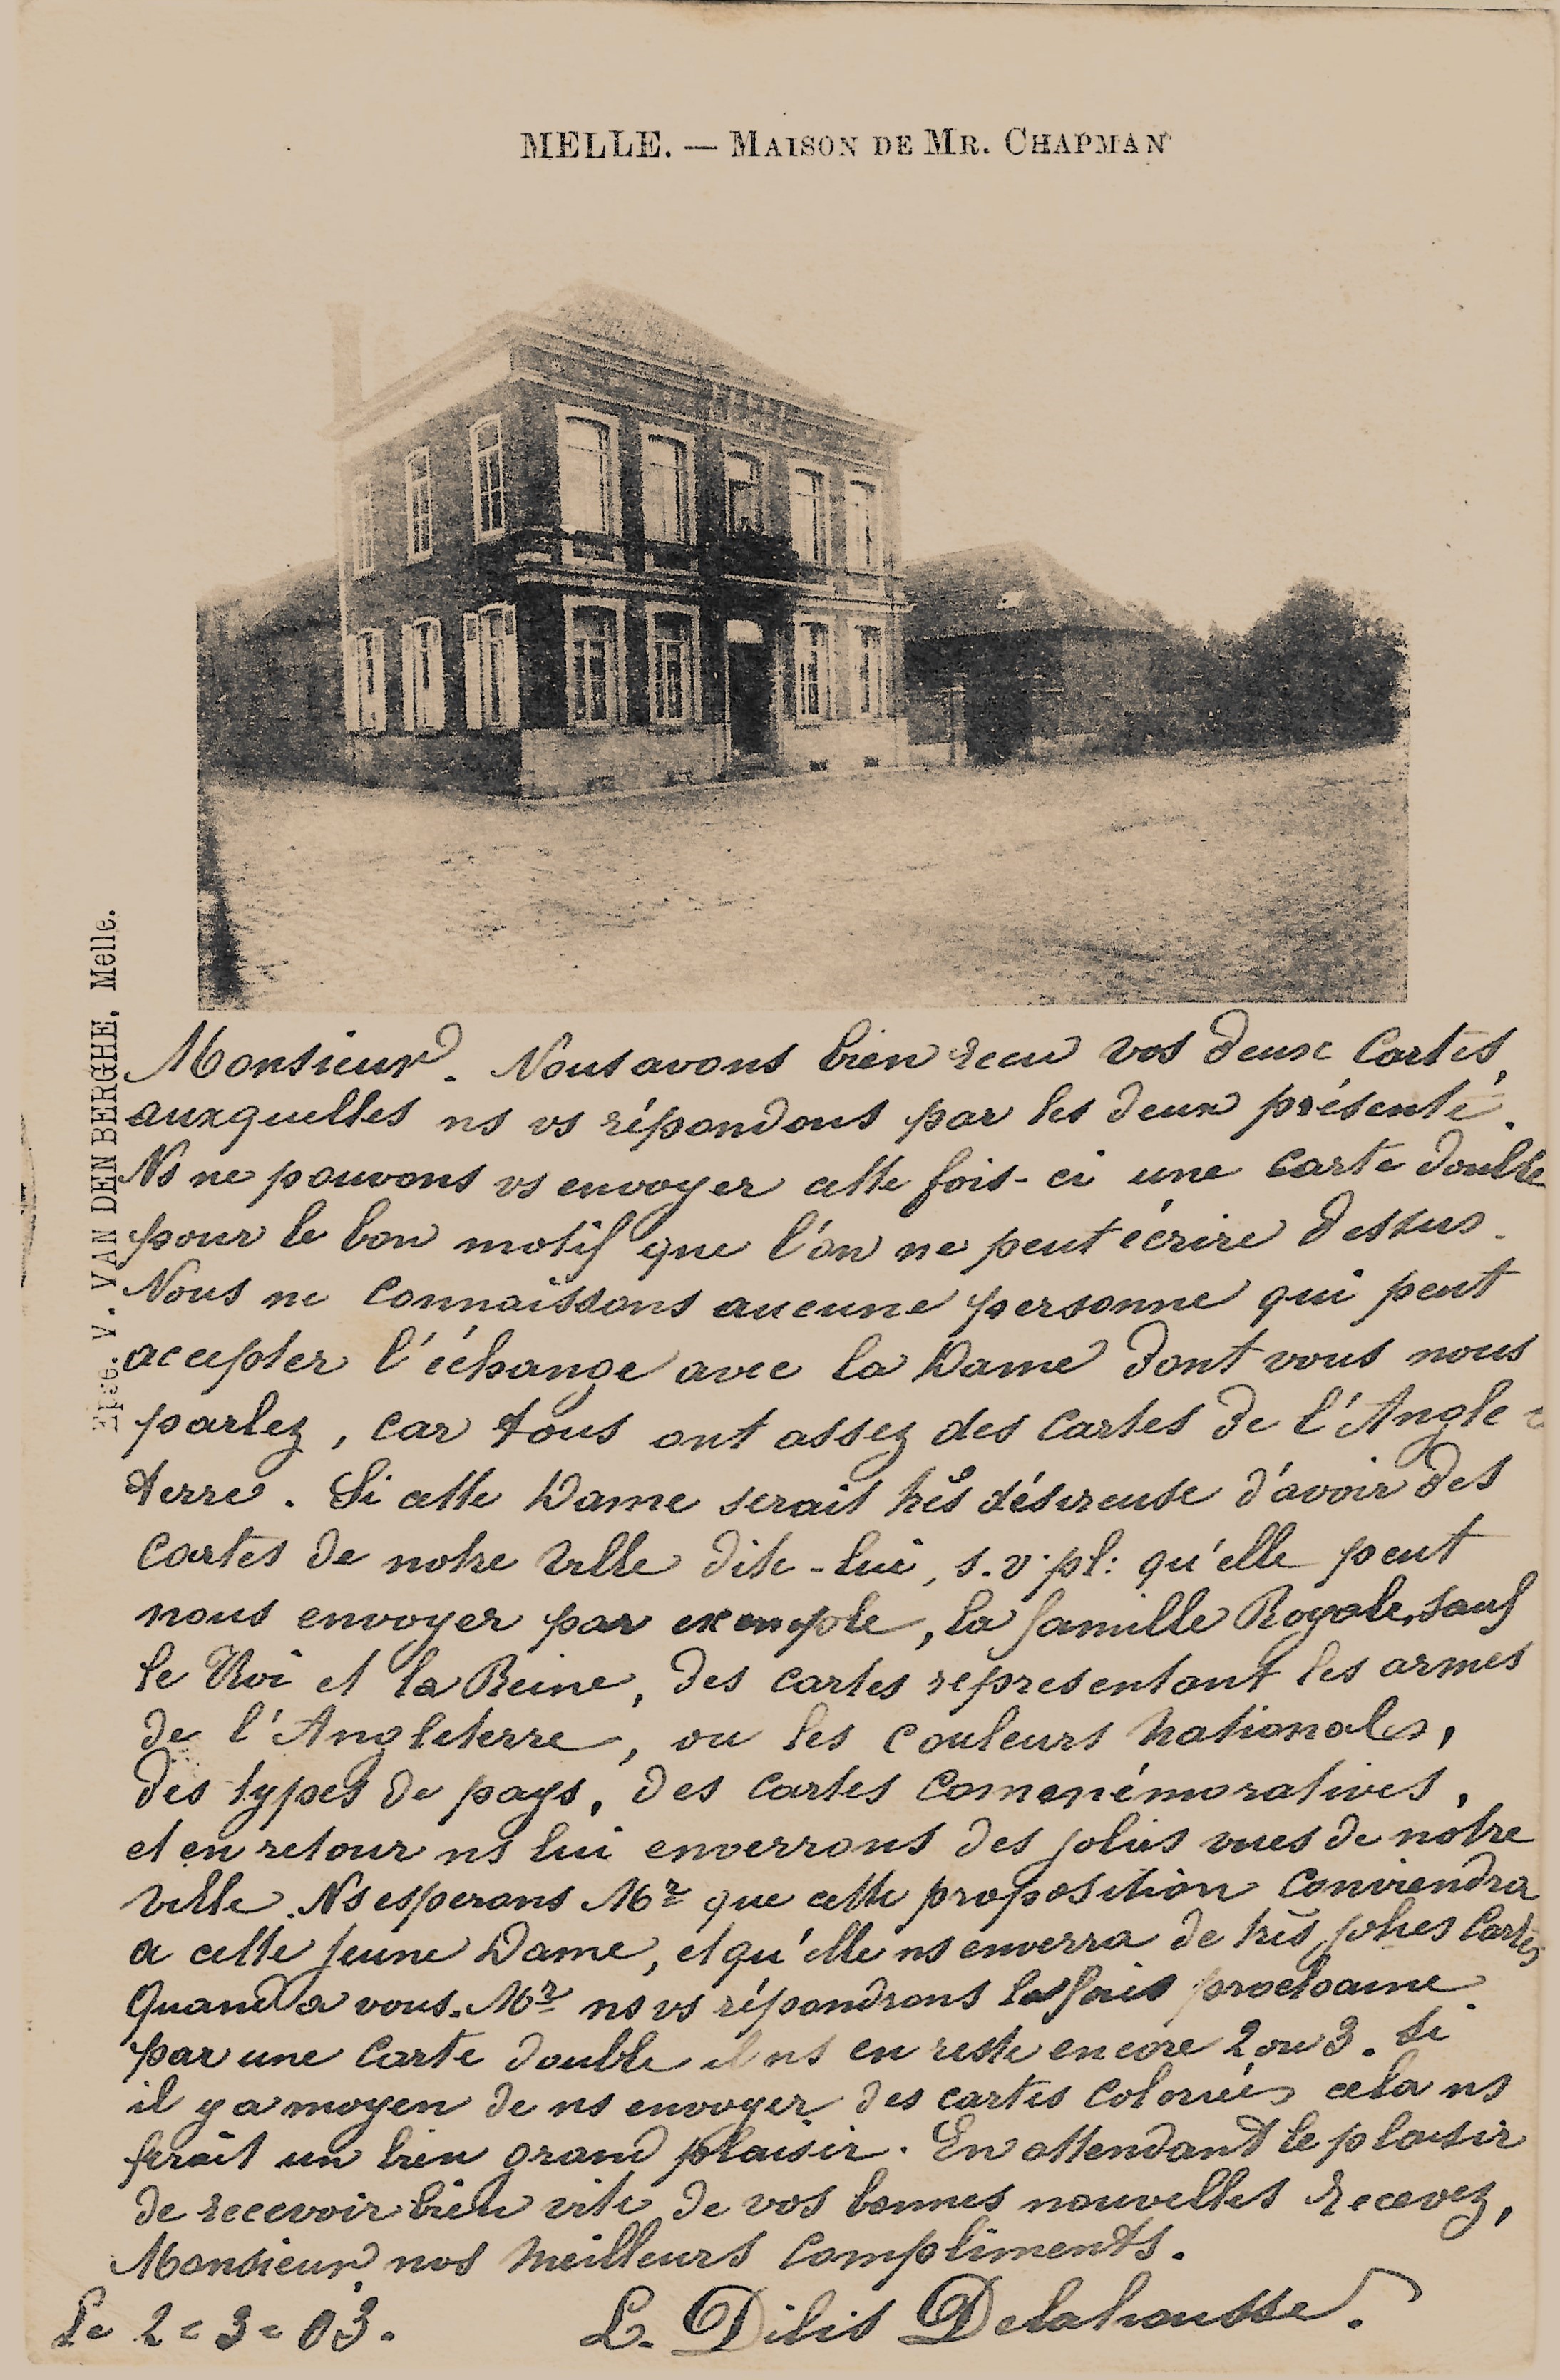 MELLE. — MAISON DE MR. CHAPMAN
Edit. V. VAN DEN BERGHE, Melle.
Monsieur. Nous avons bien recu vos deux Cartes,
auxquelles ns vs répondons par les deux présenté.
Ns ne pouvons vs envoyer cette fois-ci une carte double
pour le bon motif que l'on ne peut écrire dessus.
Nous ne connaissons aucune personne qui peut
accepter l'échange avec la Dame dont vous nous
parlez, car tous ont assez des cartes de l'Angle-
terre. Si cette Dame serait très désireuse d'avoir des
cartes de notre ville dite-lui, s.v.pl: qu'elle peut
nous envoyer par exemple, la famille Royale, sauf
le Roi et la Reine, des cartes représentant les armes
de l'Angleterre, ou les couleurs nationales,
des types de pays, des cartes commémoratives,
et en retour ns lui enverrons des jolies vues de notre
ville. Ns esperons Mr que cette proposition conviendra
a cette jeune Dame, et qu'elle ns enverra de très jolies Cartes
Quand a vous. Mr ns vs répondrons la fois prochaine
par une carte double il ns en reste encore 2 ou 3. Si
il y a moyen de ns envoyer des cartes coloriées cela ns
ferait un bien grand plaisir. En attendant le plaisir
de recevoir bien vite de vos bonnes nouvelles Recevez,
Monsieur, nos meilleurs compliments.
Le 2=3=03. L. Dilis Delahousse.